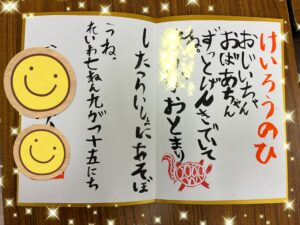 けいろうのひ
おじいちゃん
おばあちゃん
ずっとげんきでいて
ね。
おとまり
したらいっしょにあそぼ
うね。
れいわ七ねん九がつ十五にち